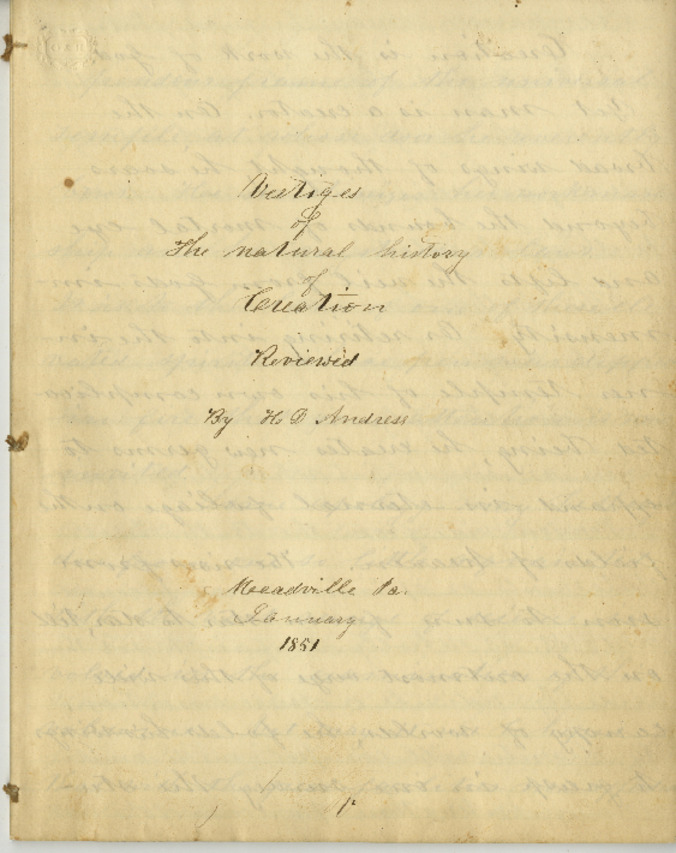 Vestiges
of
The natural history
of
Creation
Reviewed
By H D Andress
Meadville Pa.
January
1851